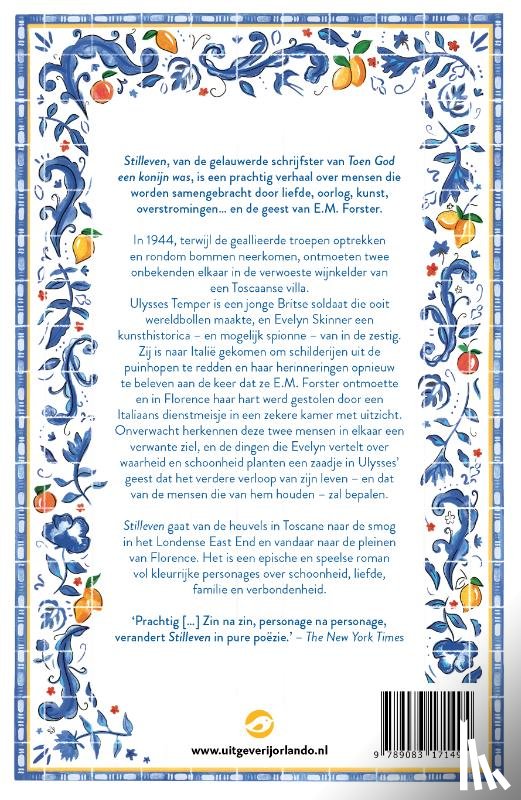 Stilleven, van de gelauwerde schrijfster van Toen God
een konijn was, is een prachtig verhaal over mensen die
worden samengebracht door liefde, oorlog, kunst,
overstromingen... en de geest van E.M. Forster.
In 1944, terwijl de geallieerde troepen optrekken
en rondom bommen neerkomen, ontmoeten twee
onbekenden elkaar in de verwoeste wijnkelder van
een Toscaanse villa.
Ulysses Temper is een jonge Britse soldaat die ooit
wereldbollen maakte, en Evelyn Skinner een
kunsthistorica – en mogelijk spionne – van in de zestig.
Zij is naar Italië gekomen om schilderijen uit de
puinhopen te redden en haar herinneringen opnieuw
te beleven aan de keer dat ze E.M. Forster ontmoette
en in Florence haar hart werd gestolen door een
Italiaans dienstmeisje in een zekere kamer met uitzicht.
Onverwacht herkennen deze twee mensen in elkaar een
verwante ziel, en de dingen die Evelyn vertelt over
waarheid en schoonheid planten een zaadje in Ulysses'
geest dat het verdere verloop van zijn leven – en dat
van de mensen die van hem houden – zal bepalen.
Stilleven gaat van de heuvels in Toscane naar de smog
in het Londense East End en vandaar naar de pleinen
van Florence. Het is een epische en speelse roman
vol kleurrijke personages over schoonheid, liefde,
familie en verbondenheid.
'Prachtig [...] Zin na zin, personage na personage,
verandert Stilleven in pure poëzie.' – The New York Times
www.uitgeverijorlando.nl
9 789083 1714